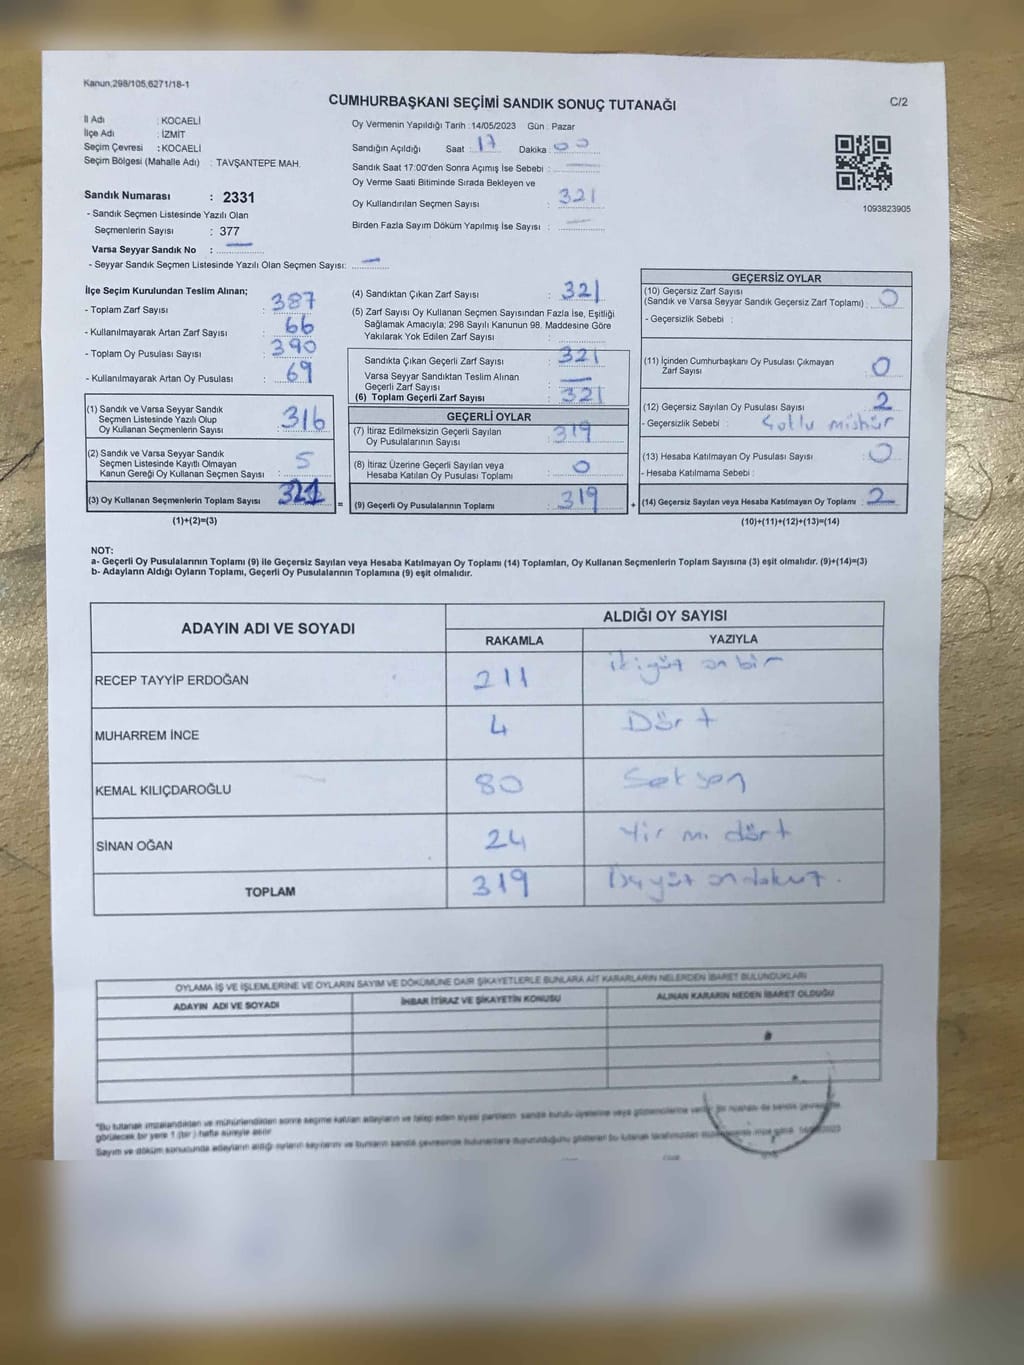 Kanun,298/105,6271/18-1
CUMHURBAŞKANI SEÇİMİ SANDIK SONUÇ TUTANAĞI
C/2
İl Adı : KOCAELİ
İlçe Adı : İZMİT
Seçim Çevresi : KOCAELİ
Seçim Bölgesi (Mahalle Adı) : TAVŞANTEPE MAH.
Sandık Numarası : 2331
- Sandık Seçmen Listesinde Yazılı Olan
Seçmenlerin Sayısı : 377
Varsa Seyyar Sandık No :
- Seyyar Sandık Seçmen Listesinde Yazılı Olan Seçmen Sayısı:
Oy Vermenin Yapıldığı Tarih : 14/05/2023 Gün : Pazar
Sandığın Açıldığı Saat : 17 Dakika : 00
Sandık Saat 17:00'den Sonra Açımış İse Sebebi :
Oy Verme Saati Bitiminde Sırada Bekleyen ve
Oy Kullandırılan Seçmen Sayısı : 321
Birden Fazla Sayım Döküm Yapılmış İse Sayısı :
1093823905
İlçe Seçim Kurulundan Teslim Alınan;
- Toplam Zarf Sayısı : 387
- Kullanılmayarak Artan Zarf Sayısı : 66
- Toplam Oy Pusulası Sayısı : 390
- Kullanılmayarak Artan Oy Pusulası : 69
(1) Sandık ve Varsa Seyyar Sandık
Seçmen Listesinde Yazılı Olup
Oy Kullanan Seçmenlerin Sayısı : 316
(2) Sandık ve Varsa Seyyar Sandık
Seçmen Listesinde Kayıtlı Olmayan
Kanun Gereği Oy Kullanan Seçmen Sayısı : 5
(3) Oy Kullanan Seçmenlerin Toplam Sayısı : 321
(1)+(2)=(3)
(4) Sandıktan Çıkan Zarf Sayısı : 321
(5) Zarf Sayısı Oy Kullanan Seçmen Sayısından Fazla İse, Eşitliği
Sağlamak Amacıyla; 298 Sayılı Kanunun 98. Maddesine Göre
Yakılarak Yok Edilen Zarf Sayısı :
Sandıkta Çıkan Geçerli Zarf Sayısı : 321
Varsa Seyyar Sandıktan Teslim Alınan
Geçerli Zarf Sayısı :
(6) Toplam Geçerli Zarf Sayısı : 321
GEÇERLİ OYLAR
(7) İtiraz Edilmeksizin Geçerli Sayılan
Oy Pusulalarının Sayısı : 319
(8) İtiraz Üzerine Geçerli Sayılan veya
Hesaba Katılan Oy Pusulası Toplamı : 0
= (9) Geçerli Oy Pusulalarının Toplamı : 319
GEÇERSİZ OYLAR
(10) Geçersiz Zarf Sayısı
(Sandık ve Varsa Seyyar Sandık Geçersiz Zarf Toplamı) : 0
- Geçersizlik Sebebi :
(11) İçinden Cumhurbaşkanı Oy Pusulası Çıkmayan
Zarf Sayısı : 0
(12) Geçersiz Sayılan Oy Pusulası Sayısı : 2
- Geçersizlik Sebebi :
(13) Hesaba Katılmayan Oy Pusulası Sayısı : 0
- Hesaba Katılmama Sebebi :
+ (14) Geçersiz Sayılan veya Hesaba Katılmayan Oy Toplamı : 2
(10)+(11)+(12)+(13)=(14)
NOT:
a- Geçerli Oy Pusulalarının Toplamı (9) ile Geçersiz Sayılan veya Hesaba Katılmayan Oy Toplamı (14) Toplamları, Oy Kullanan Seçmenlerin Toplam Sayısına (3) eşit olmalıdır. (9)+(14)=(3)
b- Adayların Aldığı Oyların Toplamı, Geçerli Oy Pusulalarının Toplamına (9) eşit olmalıdır.
ADAYIN ADI VE SOYADI ALDIĞI OY SAYISI
RAKAMLA YAZIYLA
RECEP TAYYİP ERDOĞAN 211 ikiyüz on bir
MUHARREM İNCE 4 Dört
KEMAL KILIÇDAROĞLU 80 Seksen
SİNAN OĞAN 24 Yirmi dört
TOPLAM 319 Üçyüz ondokuz.
OYLAMA İŞ VE İŞLEMLERİNE VE OYLARIN SAYIM VE DÖKÜMÜNE DAİR ŞİKAYETLERLE BUNLARA AİT KARARLARIN NELERDEN İBARET BULUNDUKLARI
ADAYIN ADI VE SOYADI İHBAR İTİRAZ VE ŞİKAYETİN KONUSU ALINAN KARARIN NEDEN İBARET OLDUĞU
*Bu tutanak imzalandıktan ve mühürlendikten sonra seçime katılan adayların ve talep eden siyasi partilerin sandık kurulu üyelerine veya gözlemcilerine verilir. Bir nüshası da sandık çevresinde
görülecek bir yere 1 (bir) hafta süreyle asılır.
Sayım ve döküm sonucunda adayların aldığı oyların sayılarını ve bunların sandık çevresinde bulunanlara duyurulduğunu gösteren bu tutanak tarafımızdan